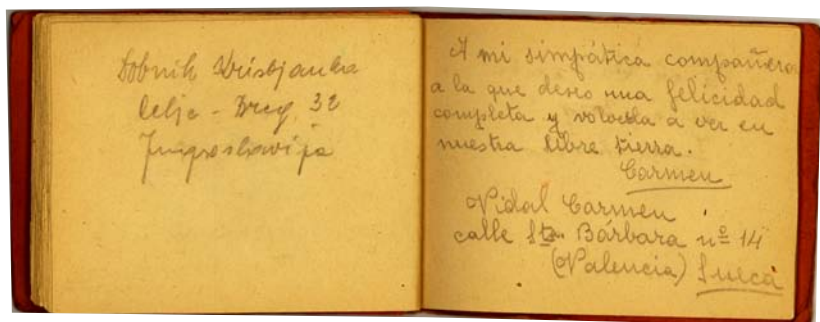 Dobnik Kristjanka
Celje - Breg 32
Jugoslavija
A mi simpática compañera
a la que deseo una felicidad
completa y volverla a ver en
nuestra libre tierra.
Carmen
Vidal Carmen
calle Sta. Bárbara nº 14
(Valencia) Sueca